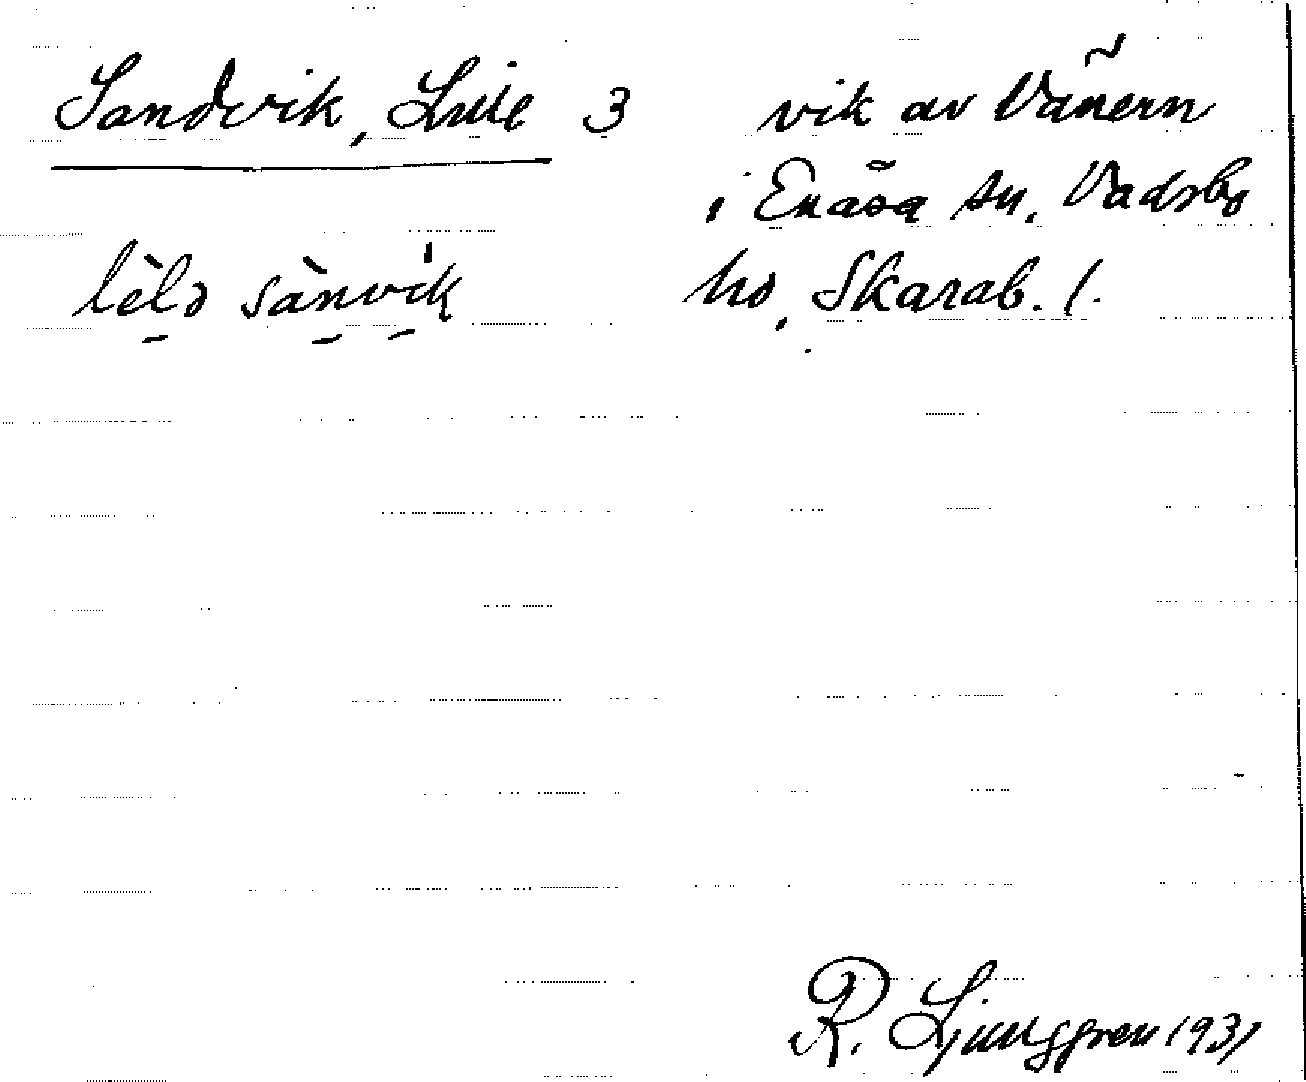 Sandvik, Lille 3
vik av Vänern
i Enåsa sn, Vadsbo
hd, Skarab. l.
lèlɔ sànvik
R. Ljunggren 1931